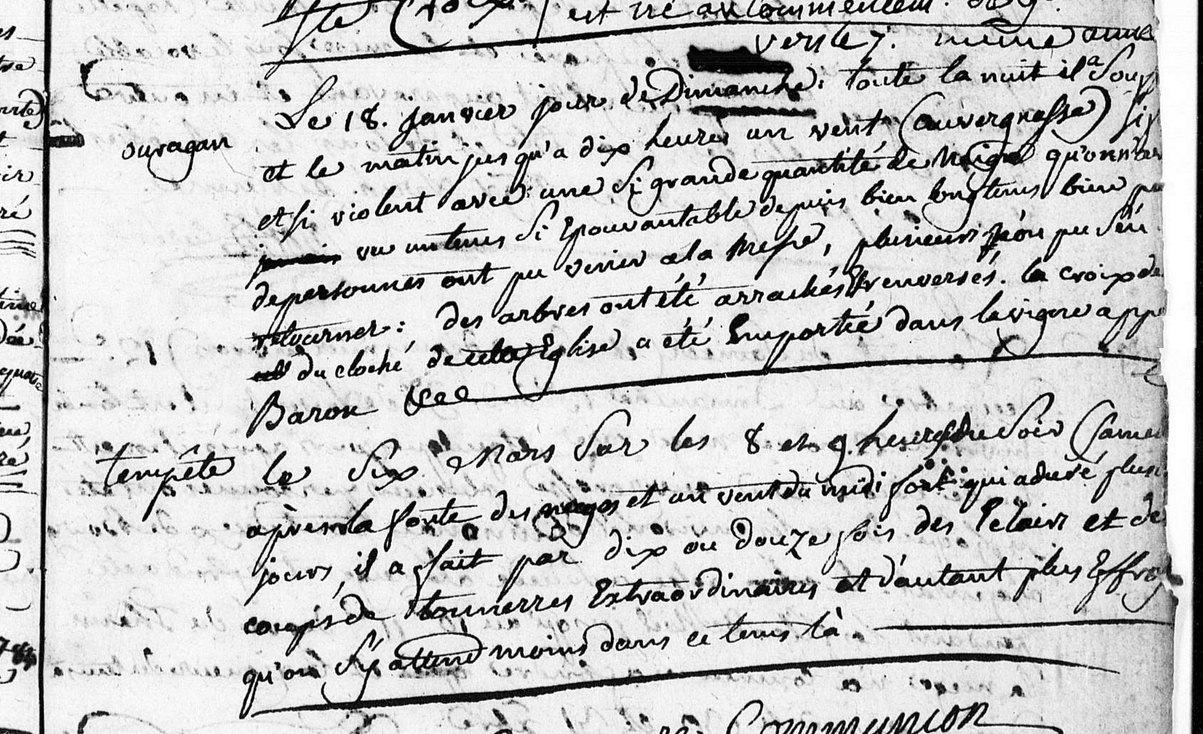 Ste Croix est né au commencem.
vers le 7. même anné
ouragan
Le 18. janvier jour de Dimanche: toute la nuit il a Souf
et le matin jusqu'a dix heures un vent (auvergnasse) si
et si violent avec une si grande quantité de Neige qu'on n'a
vu un tems si Epouvantable depuis bien longtems bien pe
de personnes ont pu venir a la Messe, plusieurs n'ón pu s'en
retourner: des arbres ont été arrachés & renversés. la croix de
du cloché de cette Eglise a été Emportée dans la vigne appe
Baron &cc
tempête
le Six Mars Sur les 8 et 9 heures du Soir (Samed
après la fonte des neiges et un vent du midi fort qui a duré plusi
jours, il a fait par dix ou douze fois des Eclairs et des
coups de tonnerres Extraordinaires et d'autant plus Effroy
qu'on s'y attend moins dans ce tems là
Communion